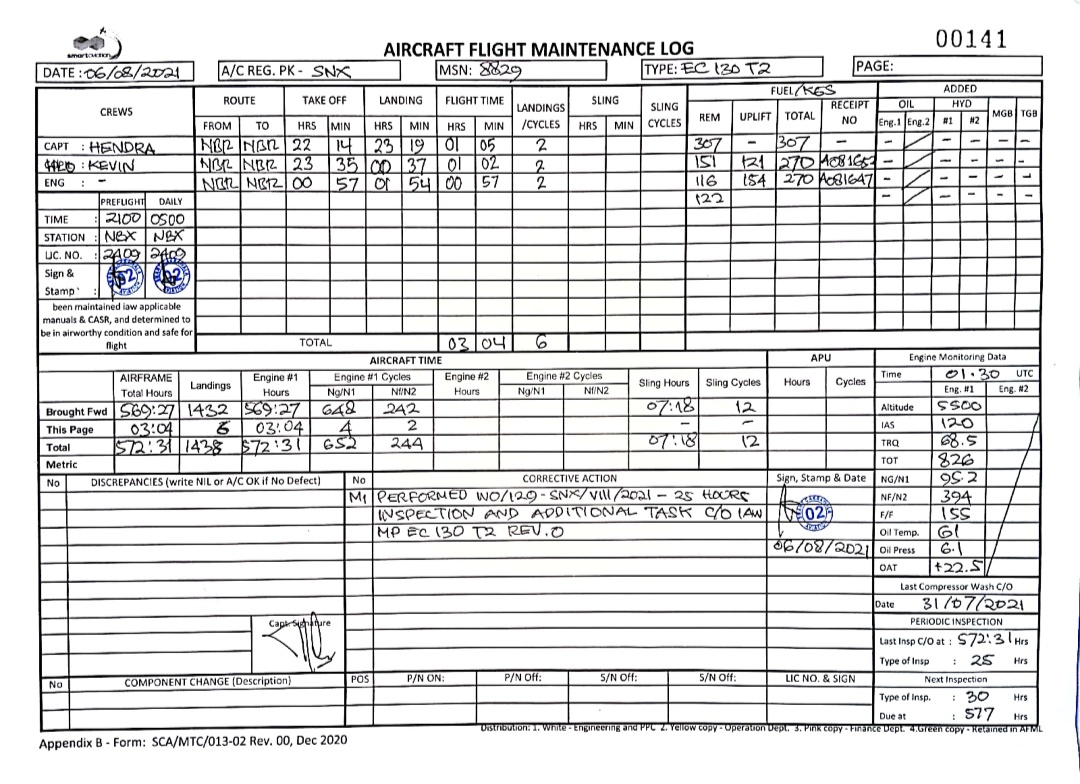 smartaviation
AIRCRAFT FLIGHT MAINTENANCE LOG
00141
DATE : 06/08/2021
A/C REG. PK - SNX
MSN: 8829
TYPE: EC 130 T2
PAGE:
CREWS ROUTE TAKE OFF LANDING FLIGHT TIME LANDINGS /CYCLES SLING SLING CYCLES FUEL/KGS ADDED
FROM TO HRS MIN HRS MIN HRS MIN HRS MIN REM UPLIFT TOTAL RECEIPT NO OIL HYD MGB TGB
Eng.1 Eng.2 #1 #2
CAPT : HENDRA NBR NBR 22 14 23 19 01 05 2 307 - 307 - - - - - -
: KEVIN NBR NBR 23 35 00 37 01 02 2 151 121 270 - - - - -
ENG : - NBR NBR 00 57 01 54 00 57 2 116 154 270 A081647 - - - - -
122 - - - - -
PREFLIGHT DAILY
TIME : 2100 0500
STATION : NBX NBX
LIC. NO. : 2409 2409
Sign & Stamp : 02 02
been maintained iaw applicable
manuals & CASR, and determined to
be in airworthy condition and safe for
flight
TOTAL 03 04 6
AIRCRAFT TIME APU Engine Monitoring Data
AIRFRAME Total Hours Landings Engine #1 Hours Engine #1 Cycles Engine #2 Hours Engine #2 Cycles Sling Hours Sling Cycles Hours Cycles
Ng/N1 Nf/N2 Ng/N1 Nf/N2
Time 01.30 UTC
Eng. #1 Eng. #2
Brought Fwd 569:27 1432 569:27 648 242 07:18 12
This Page 03:04 6 03:04 4 2 - -
Total 572:31 1438 572:31 652 244 07:18 12
Metric
Altitude 5500
IAS 120
TRQ 68.5
TOT 826
NG/N1 95.2
NF/N2 394
F/F 155
Oil Temp. 61
Oil Press 6.1
OAT +22.5
No DISCREPANCIES (write NIL or A/C OK if No Defect) No CORRECTIVE ACTION Sign, Stamp & Date
M1 PERFORMED WO/129-SNX/VIII/2021 - 25 HOURS
INSPECTION AND ADDITIONAL TASK C/O IAW
MP EC 130 T2 REV.0
02
06/08/2021
Capt. Signature
Last Compressor Wash C/O
Date 31/07/2021
PERIODIC INSPECTION
Last Insp C/O at : 572:31 Hrs
Type of Insp : 25 Hrs
Next Inspection
Type of Insp. : 30 Hrs
Due at : 577 Hrs
No COMPONENT CHANGE (Description) POS P/N ON: P/N Off: S/N Off: S/N Off: LIC NO. & SIGN
Distribution: 1. White - Engineering and PPC 2. Yellow copy - Operation Dept. 3. Pink copy - Finance Dept. 4.Green copy - Retained in AFML
Appendix B - Form: SCA/MTC/013-02 Rev. 00, Dec 2020